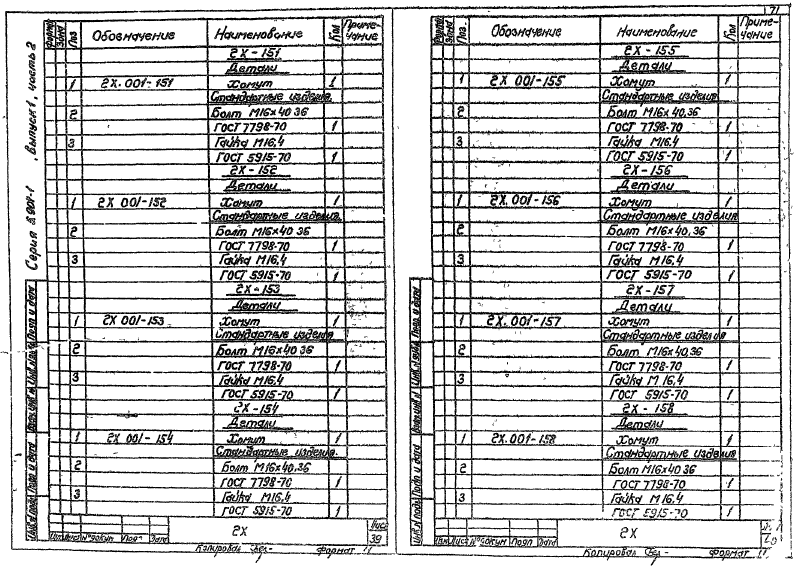 71
Серия 5.901-1, выпуск 1, часть 2
Формат Зона Поз. Обозначение Наименование Кол Приме-чание
2Х-151
Детали
1 2Х.001-151 Хомут 1
Стандартные изделия.
2 Болт М16х40.36
ГОСТ 7798-70 1
3 Гайка М16.4
ГОСТ 5915-70 1
2Х-152
Детали
1 2Х 001-152 Хомут 1
Стандартные изделия.
2 Болт М16х40 36
ГОСТ 7798-70 1
3 Гайка М16.4
ГОСТ 5915-70 1
2Х-153
Детали
1 2Х 001-153 Хомут 1
Стандартные изделия
2 Болт М16х40 36
ГОСТ 7798-70 1
3 Гайка М16.4
ГОСТ 5915-70 1
2Х-154
Детали
1 2Х 001-154 Хомут 1
Стандартные изделия.
2 Болт М16х40.36
ГОСТ 7798-70 1
3 Гайка М16.4
ГОСТ 5915-70 1
Инв.№подл Подп и дата Взам.инв.№ Инв.№дубл Подп и дата
Изм Лист №докум Подп Дата
2Х
Лист
39
Копировал Формат 11
Формат Зона Поз. Обозначение Наименование Кол Приме-чание
2Х-155
Детали
1 2Х 001-155 Хомут 1
Стандартные изделия
2 Болт М16х40.36
ГОСТ 7798-70 1
3 Гайка М16.4
ГОСТ 5915-70 1
2Х-156
Детали
1 2Х.001-156 Хомут 1
Стандартные изделия
2 Болт М16х40.36
ГОСТ 7798-70 1
3 Гайка М16.4
ГОСТ 5915-70 1
2Х-157
Детали
1 2Х.001-157 Хомут 1
Стандартные изделия
2 Болт М16х40.36
ГОСТ 7798-70 1
3 Гайка М16.4
ГОСТ 5915-70 1
2Х-158
Детали
1 2Х.001-158 Хомут 1
Стандартные изделия
2 Болт М16х40.36
ГОСТ 7798-70 1
3 Гайка М16.4
ГОСТ 5915-70 1
Инв.№подл Подп и дата Взам.инв.№ Инв.№дубл Подп и дата
Изм Лист №докум Подп Дата
2Х
Копировал Формат 11